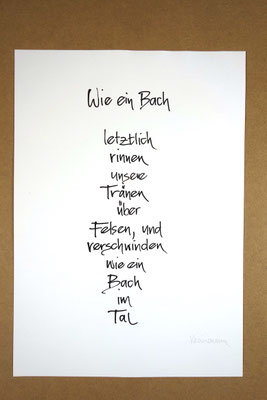 Wie ein Bach
letztlich
rinnen
unsere
Tränen
über
Felsen, und
verschwinden
wie ein
Bach
im
Tal